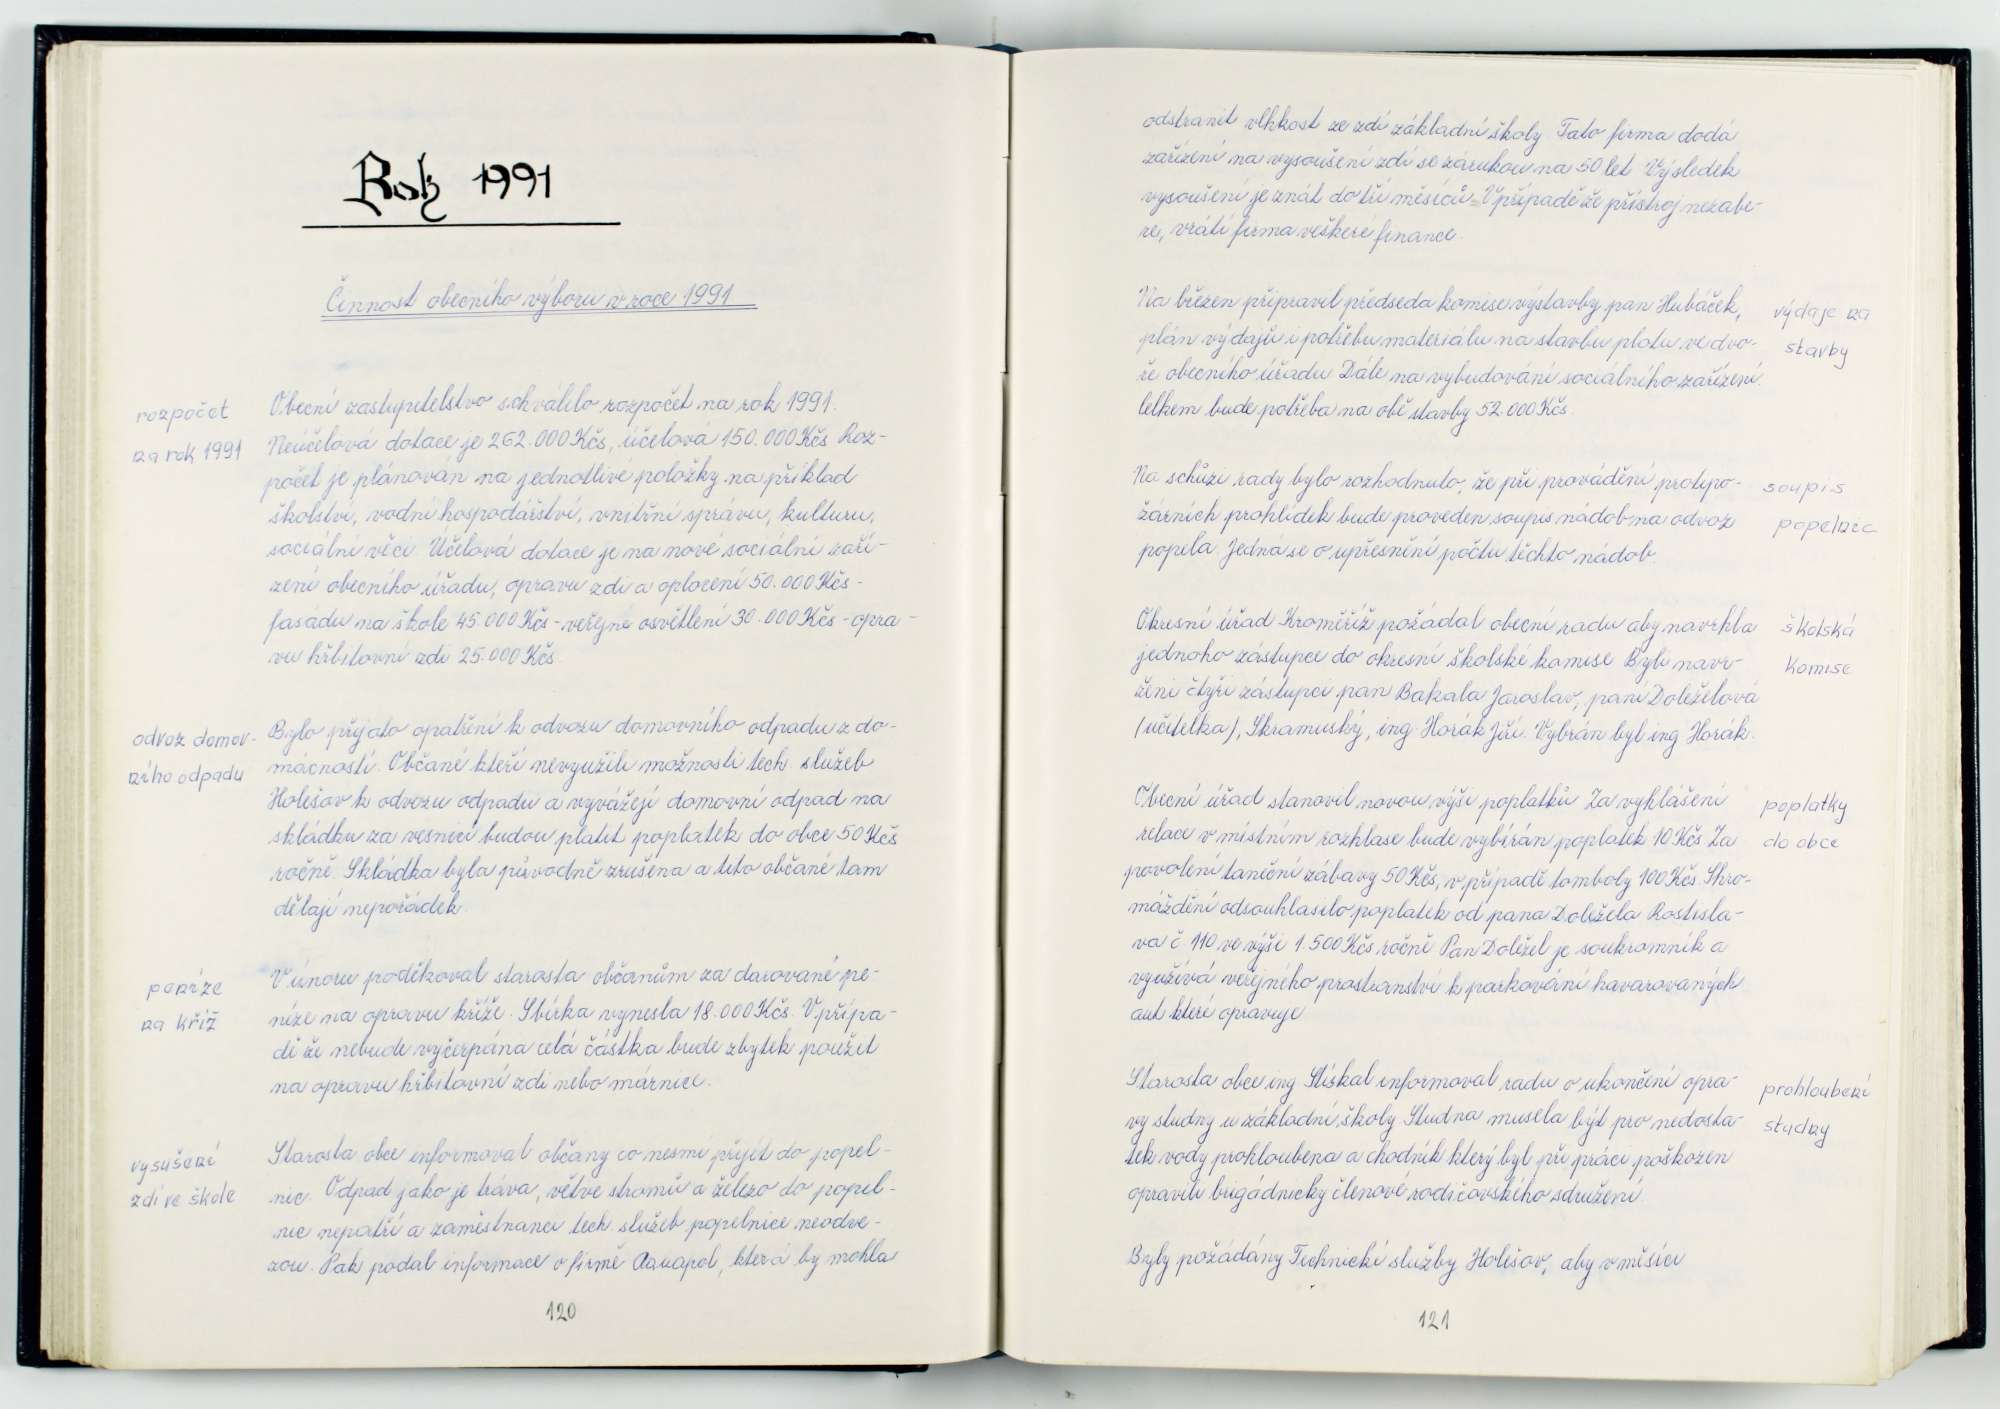 Rok 1991
Činnost obecního výboru v roce 1991
rozpočet
na rok 1991
Obecní zastupitelstvo schválilo rozpočet na rok 1991.
Neúčelová dotace je 262.000 Kčs, účelová 150.000 Kčs. Roz-
počet je plánován na jednotlivé položky na příklad
školství, vodní hospodářství, vnitřní správu, kulturu,
sociální věci. Účelová dotace je na nové sociální zaří-
zení obecního úřadu, opravu zdi a oplocení 50.000 Kčs -
fasádu na škole 45.000 Kčs - veřejné osvětlení 30.000 Kčs - opra-
vu hřbitovní zdi 25.000 Kčs.
odvoz domov-
ního odpadu
Bylo přijato opatření k odvozu domovního odpadu z do-
mácností. Občané kteří nevyužili možnosti tech. služeb
Holešov k odvozu odpadu a vyvážejí domovní odpad na
skládku za vesnicí budou platit poplatek do obce 50 Kčs
ročně. Skládka byla původně zrušena a tito občané tam
dělají nepořádek.
peníze
na kříž
V únoru poděkoval starosta občanům za darované pe-
níze na opravu kříže. Sbírka vynesla 18.000 Kčs. V přípa-
dě že nebude vyčerpána celá částka bude zbytek použit
na opravu hřbitovní zdi nebo márnice.
vysušení
zdí ve škole
Starosta obce informoval občany co nesmí přijít do popel-
nic. Odpad jako je tráva, větve stromů a železo do popel-
nic nepatří a zaměstnanci tech. služeb popelnice neodve-
zou. Pak podal informace o firmě Aquapol, která by mohla
120
odstranit vlhkost ze zdí základní školy. Tato firma dodá
zařízení na vysoušení zdí se zárukou na 50 let. Výsledek
vysoušení je znát do tří měsíců. V případě že přístroj nezabe-
re, vrátí firma veškeré finance.
Na březen připravil předseda komise výstavby pan Hubáček,
plán výdajů i potřebu materiálu na stavbu plotu ve dvo-
ře obecního úřadu. Dále na vybudování sociálního zařízení.
Celkem bude potřeba na obě stavby 52.000 Kčs.
výdaje na
stavby
Na schůzi rady bylo rozhodnuto, že při provádění protipo-
žárních prohlídek bude proveden soupis nádob na odvoz
popela. Jedná se o upřesnění počtu těchto nádob.
soupis
popelnic
Okresní úřad Kroměříž požádal obecní radu aby navrhla
jednoho zástupce do okresní školské komise. Byli navr-
ženi čtyři zástupci pan Bakala Jaroslav, paní Doleželová
(učitelka), Skramuský, ing Horák Jiří. Vybrán byl ing Horák.
školská
komise
Obecní úřad stanovil novou výši poplatků. Za vyhlášení
relace v místním rozhlase bude vybírán poplatek 10 Kčs. Za
povolení taneční zábavy 50 Kčs, v případě tomboly 100 Kčs. Shro-
máždění odsouhlasilo poplatek od pana Doležela Rostisla-
va č 110 ve výši 1.500 Kčs ročně. Pan Doležel je soukromník a
využívá veřejného prostranství k parkování havarovaných
aut které opravuje.
poplatky
do obce
Starosta obce ing Stískal informoval radu o ukončení opra-
vy studny u základní školy. Studna musela být pro nedosta-
tek vody prohloubena a chodník který byl při práci poškozen
opravili brigádnicky členové rodičovského sdružení.
prohloubení
studny
Byly požádány Technické služby Holešov, aby v měsíci
121